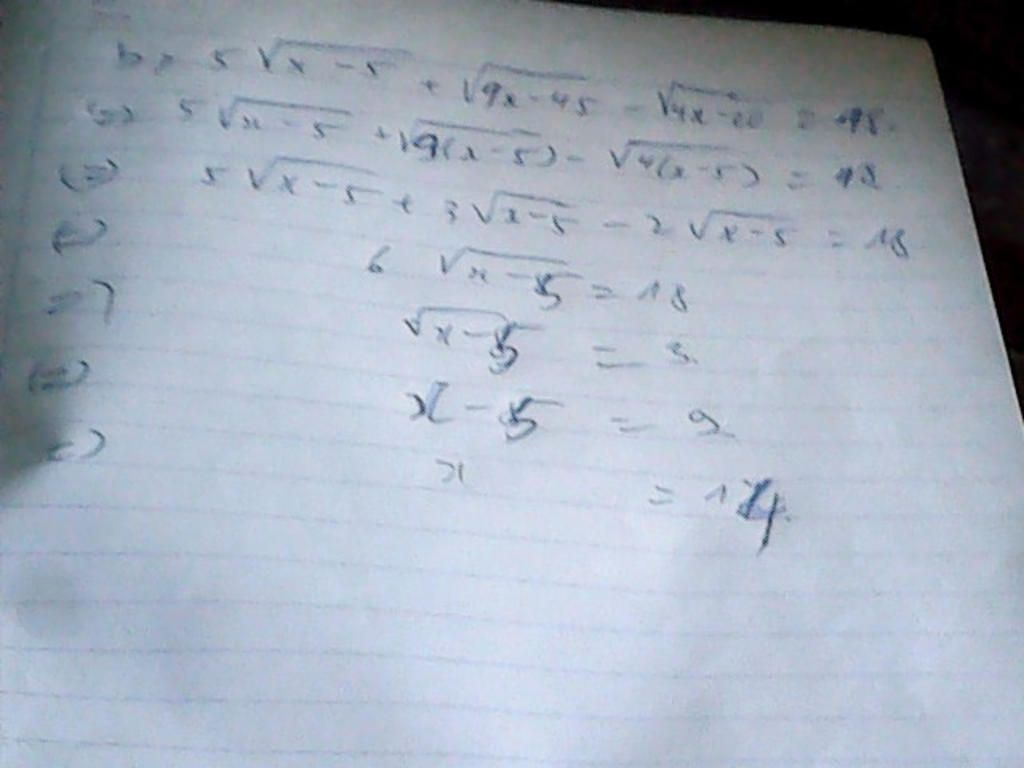 b, 5√(x-5) + √(9x-45) - √(4x-20) = 18.
(=) 5√(x-5) + √(9(x-5)) - √(4(x-5)) = 18
(=) 5√(x-5) + 3√(x-5) - 2√(x-5) = 18
(=) 6√(x-5) = 18
=) √(x-5) = 3.
(=) x-5 = 9
(=) x = 14.